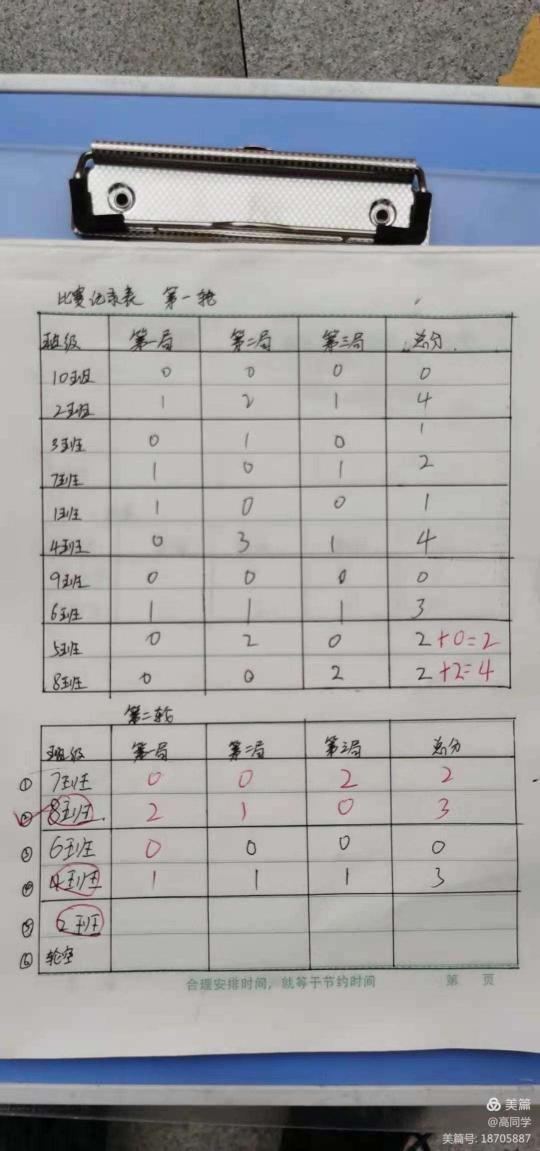 比赛记录表 第一轮
班级 第一局 第二局 第三局 总分
10班 0 0 0 0
2班 1 2 1 4
3班 0 1 0 1
7班 1 0 1 2
1班 1 0 0 1
4班 0 3 1 4
9班 0 0 0 0
6班 1 1 1 3
5班 0 2 0 2+0=2
8班 0 0 2 2+2=4
第二轮
班级 第一局 第二局 第三局 总分
① 7班 0 0 2 2
② 8班 2 1 0 3
③ 6班 0 0 0 0
④ 4班 1 1 1 3
⑤ 2班
⑥ 轮空
合理安排时间，就等于节约时间 第 页
美篇
@高同学
美篇号: 18705887